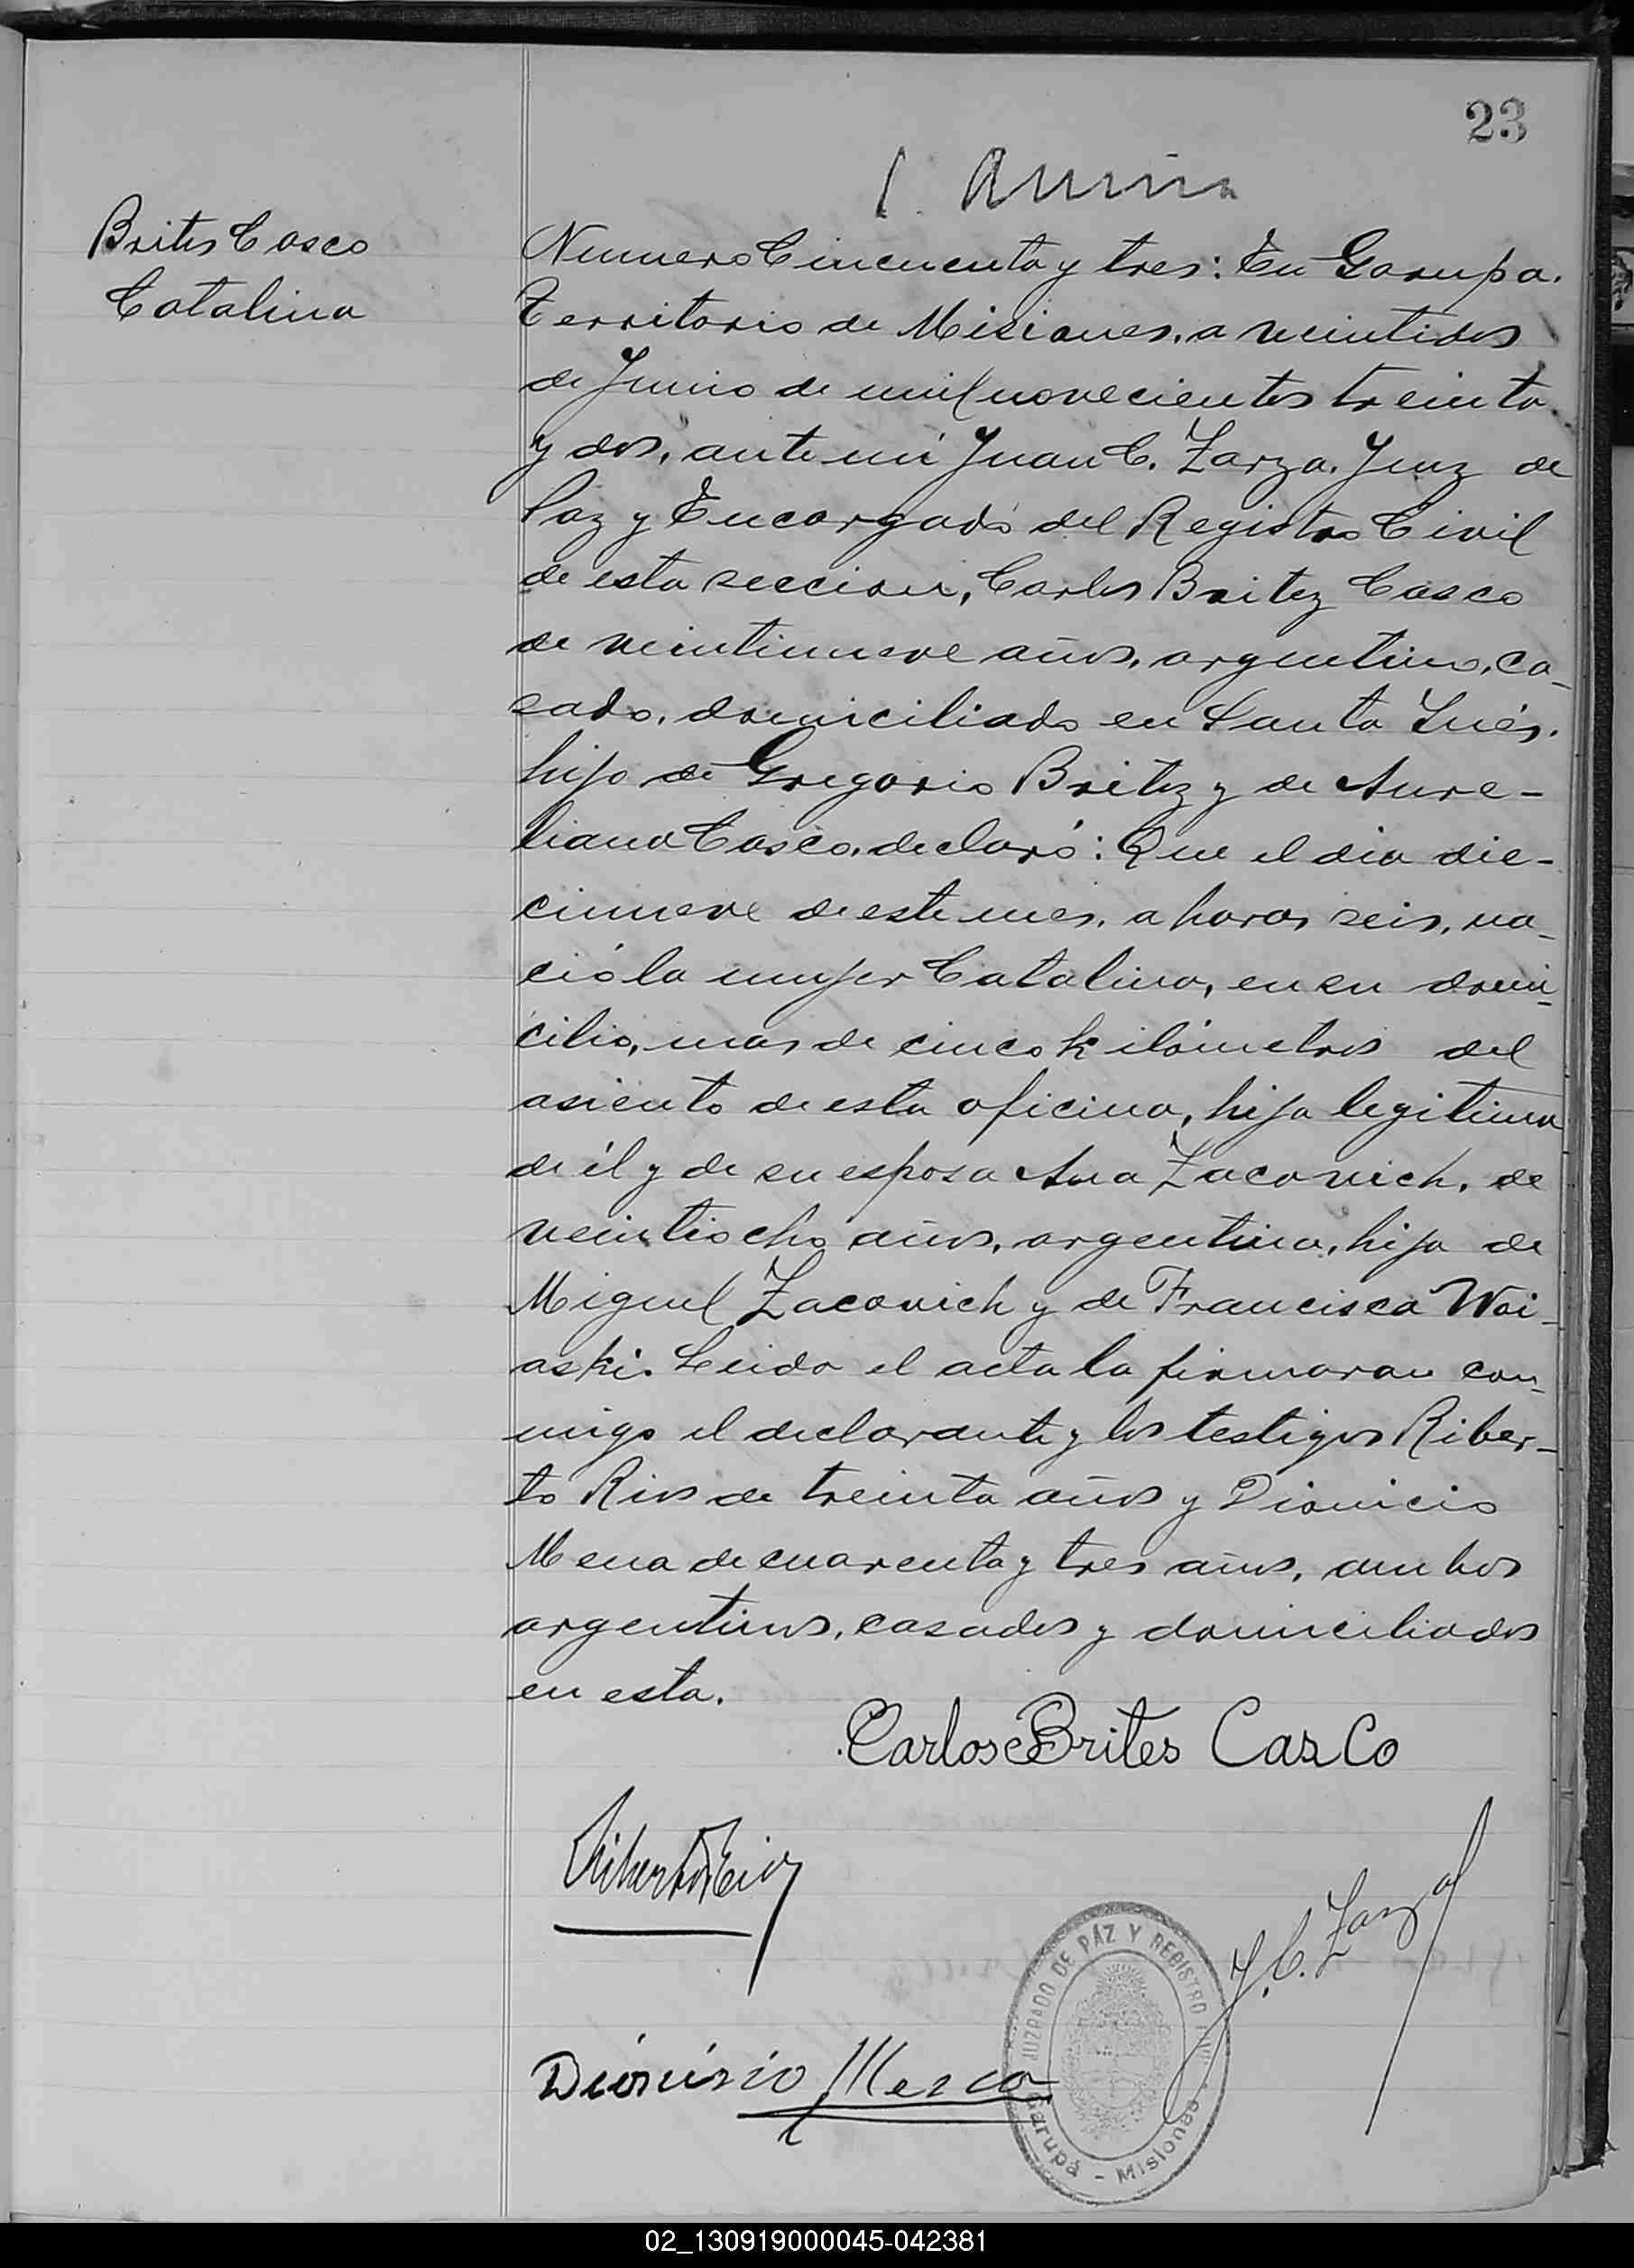 23
Brites Casco
Catalina
Numero Cincuenta y tres: En Garupa.
Territorio de Misiones, a veintidos
de Junio de mil novecientos treinta
y dos, ante mi Juan C. Zarza. Juez de
Paz y Encargado del Registro Civil
de esta seccion, Carlos Britez Casco
de veintinueve años, argentino, ca-
sado, domiciliado en Santa Inés.
hijo de Gregorio Britez y de Aure-
liana Casco, declaró: Que el dia die-
cinueve de este mes, a horas seis, na-
ció la mujer Catalina, en su domi-
cilio, mas de cinco kilómetros del
asiento de esta oficina, hija legitima
de él y de su esposa Ana Zacovich, de
veintiocho años, argentina, hija de
Miguel Zacovich y de Francisca Woi-
aski. Leida el acta la firmaron con-
migo el declarante y los testigos Riber-
to Rios de treinta años y Dionicio
Mena de cuarenta y tres años, ambos
argentinos, casados y domiciliados
en esta.
Carlos Brites CasCo
Riberto Rios
J. C. Zarza
JUZGADO DE PAZ Y REGISTRO CIVIL
Dionisio Mena
Garupá - Misiones
02_130919000045-042381